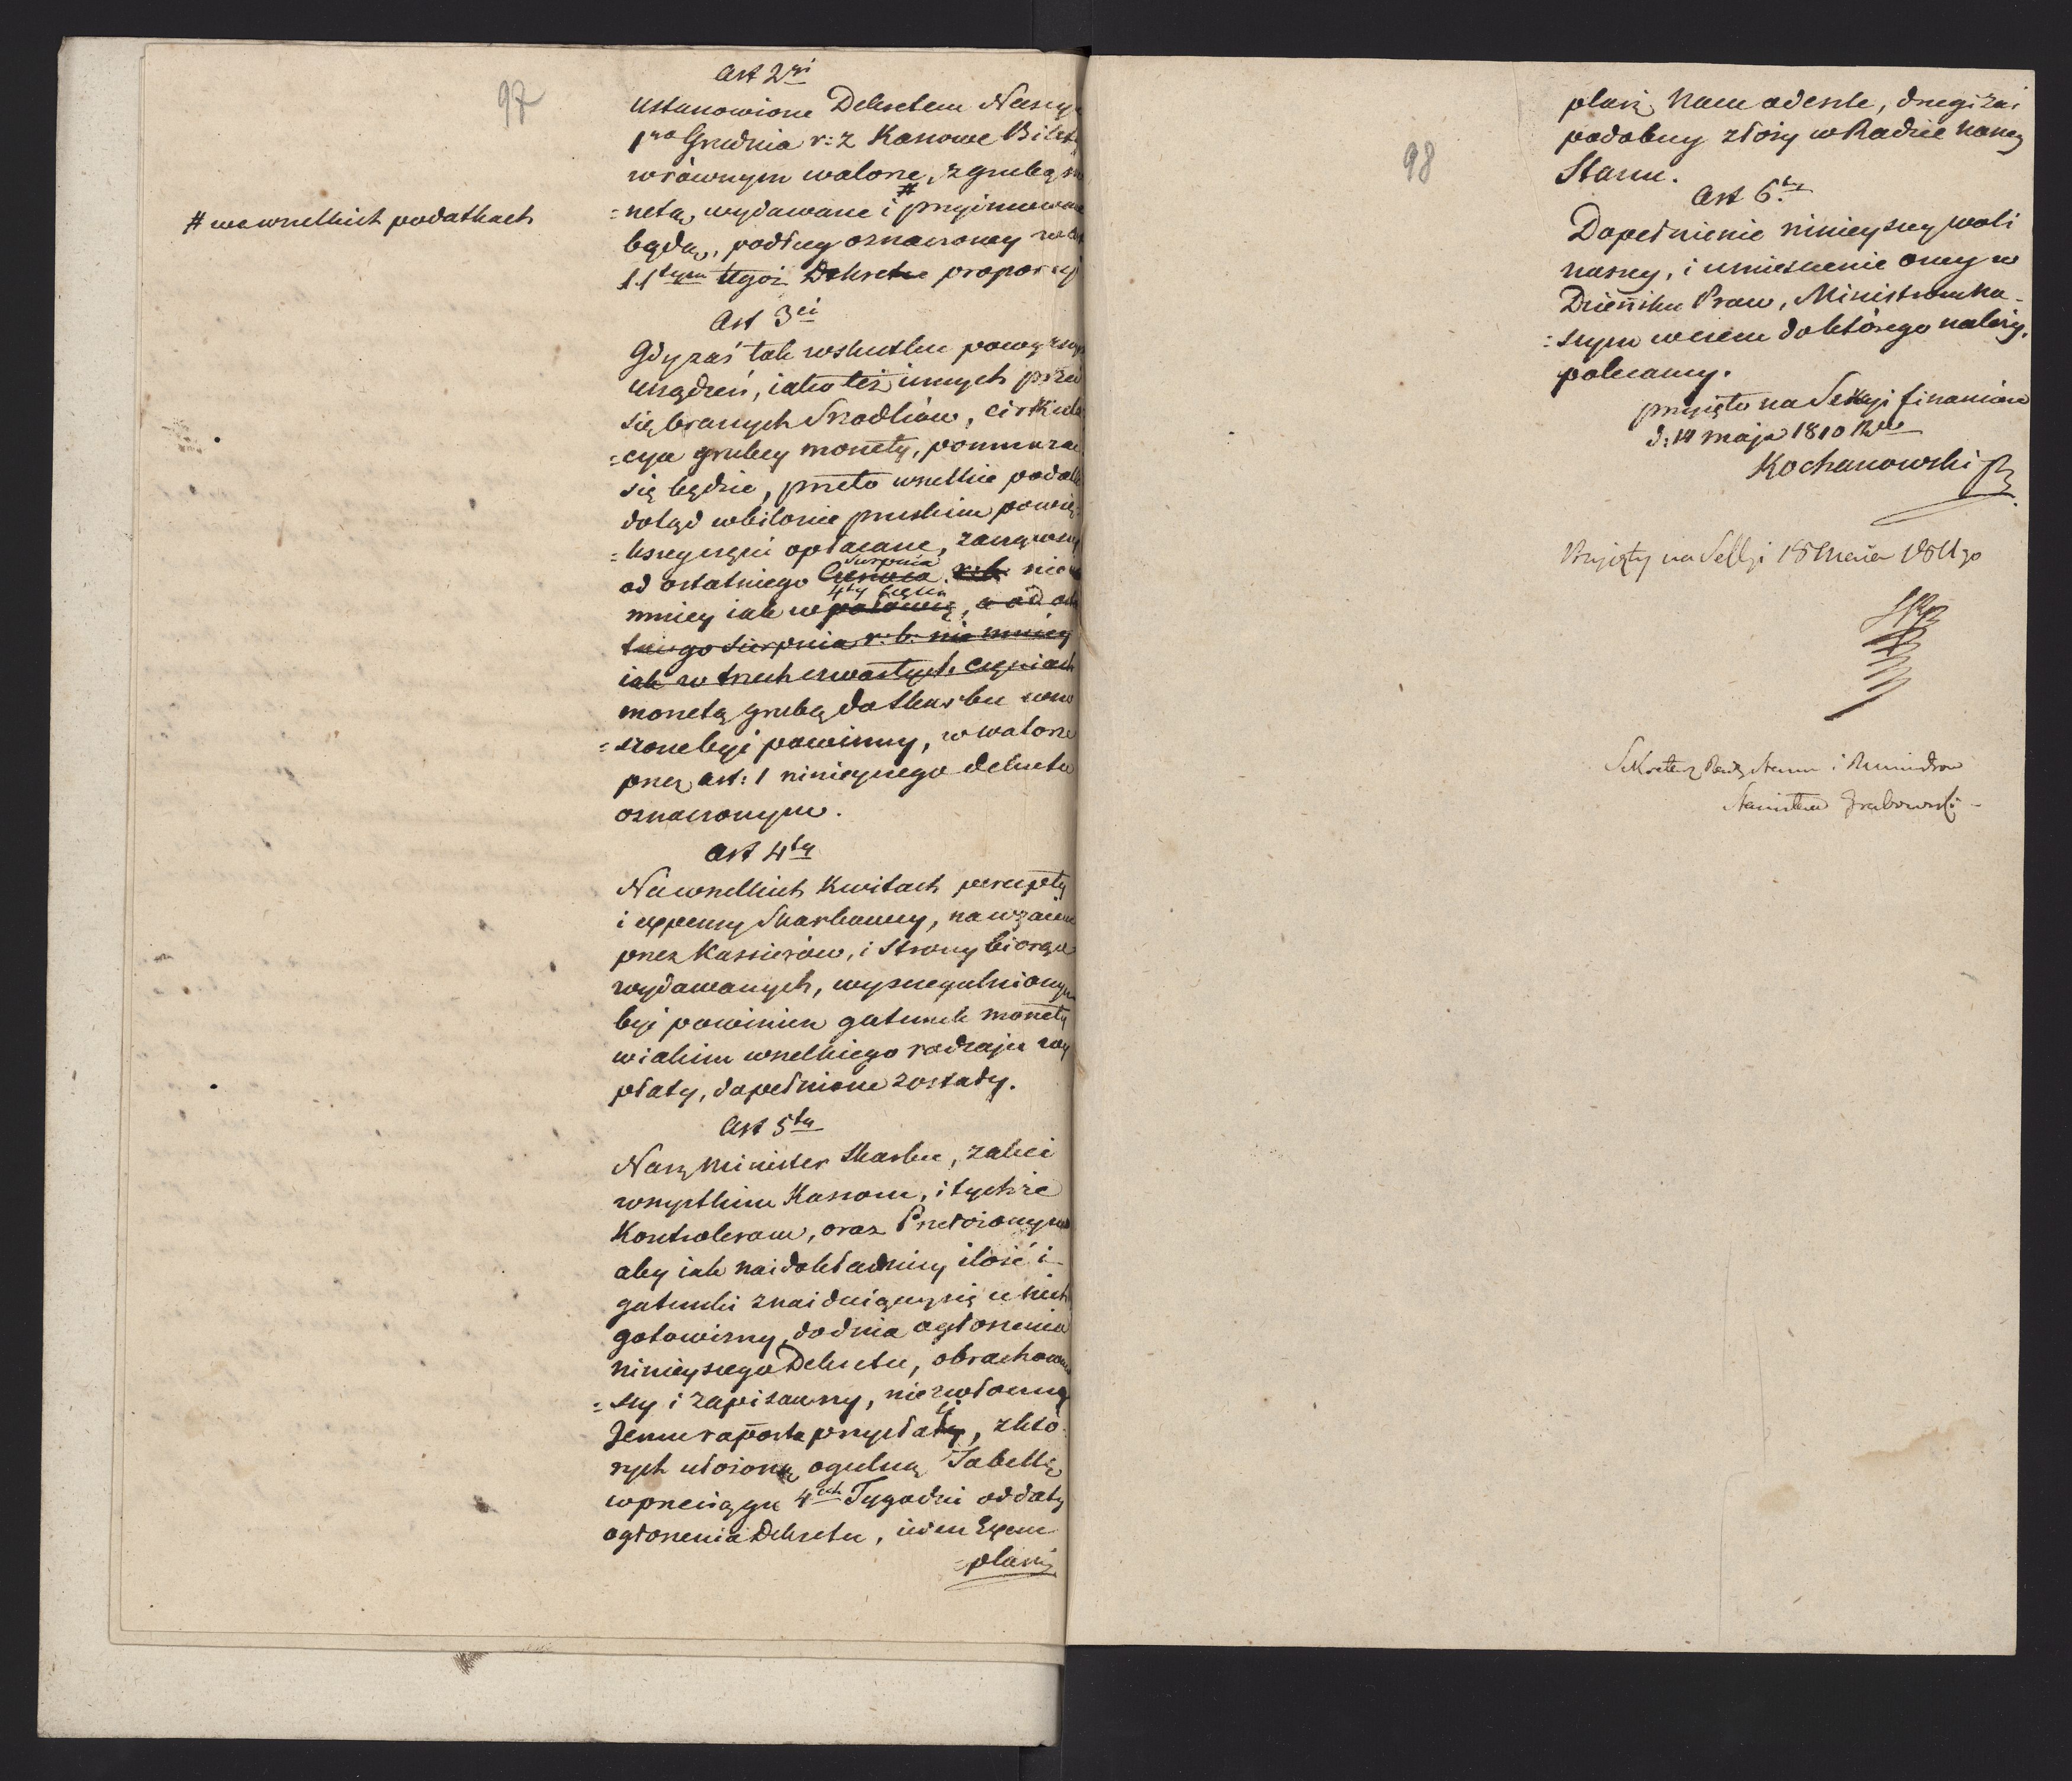 97
Art 2gi
Ustanowione Dekretem Naszym
1go Grudnia r: z Kassowe Bilety
w równym walorze, z grubą mo
=netą, wydawane i # przyimowane
# we wszelkich podatkach
będą, podług oznaczoney w Art
11tym tegoż Dekretu proporcyi
Art 3ci
Gdy zaś tak w skutku powyższych
urządzeń, iako też innych przed
się branych Srodków, cirkula
=cya grubey monety, pomnażać
się będzie, przeto wszelkie podatki
dotąd w bilonie pruskim powię
=kszey części opłacane, zacząwszy
od ostatniego Czerwca Sierpnia r: b: nie
mniey iak w połowie 4tey części, a od osta
tniego Sierpnia r: b: nie mniey
iak w trzech czwartych częściach
monetą grubą do Skarbu wno
=szone być powinny, w walorze
przez art: 1 ninieyszego dekretu
oznaczonym.
Art 4ty
Na wszelkich Kwitach percepty
i expensy Skarbowey, nawzaiem
przez Kassierów, i Strony biorące
wydawanych, wyszczegulnionym
być powinien gatunek monety
w iakim wszelkiego rodzaju wy
płaty, dopełnione zostały.
Art 5ty
Nasz Minister Skarbu, zaleci
wszystkim Kassom, i tychże
Kontrolerom, oraz Przełożonym
aby iak naidokładniey ilość i
gatunki znaiduiącey się u nich
gotowizny, do dnia ogłoszenia
ninieyszego Dekretu, obrachowa
=szy i zapisawszy, niezwłoczne
Jemu raporta przysłały, z któ
rych ułożoną ogulną Tabellę
w przeciągu 4ech Tygodni od daty
ogłoszenia Dekretu, ieden Exem
=plarz
98
plarz Nam odeszle, drugi zaś
podobny złoży w Radzie naszey
Stanu.
Art 6ty
Dopełnienie ninieyszey woli
naszey, i umieszczenie oney w
Dzienniku Praw, Ministrom na
=szym w czem do którego należy,
polecamy.
przyięto na Sekcyi finansów
d: 14 maja 1810 Rku
Kochanowski
Przyięty na Sessyi 15 Maia 1810
Sekretarz Rady Stanu i Ministrów
Stanisław Grabowski